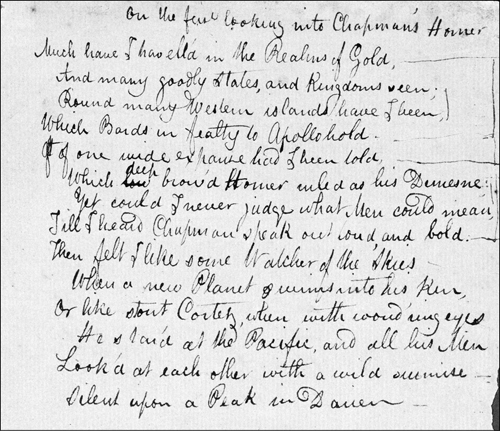 On the first looking into Chapman's Homer
Much have I travell'd in the Realms of Gold,
And many goodly States, and Kingdoms seen;
Round many Western islands have I been,
Which Bards in fealty to Apollo hold.
Oft of one wide expanse had I been told,
deep
Which low brow'd Homer ruled as his Demesne:
Yet could I never judge what Men could mean
Till I heard Chapman speak out loud, and bold.
Then felt I like some Watcher of the Skies
When a new Planet swims into his Ken,
Or like stout Cortez, when with wond'ring eyes
He star'd at the Pacific, and all his Men
Look'd at each other with a wild surmise —
Silent upon a Peak in Darien —